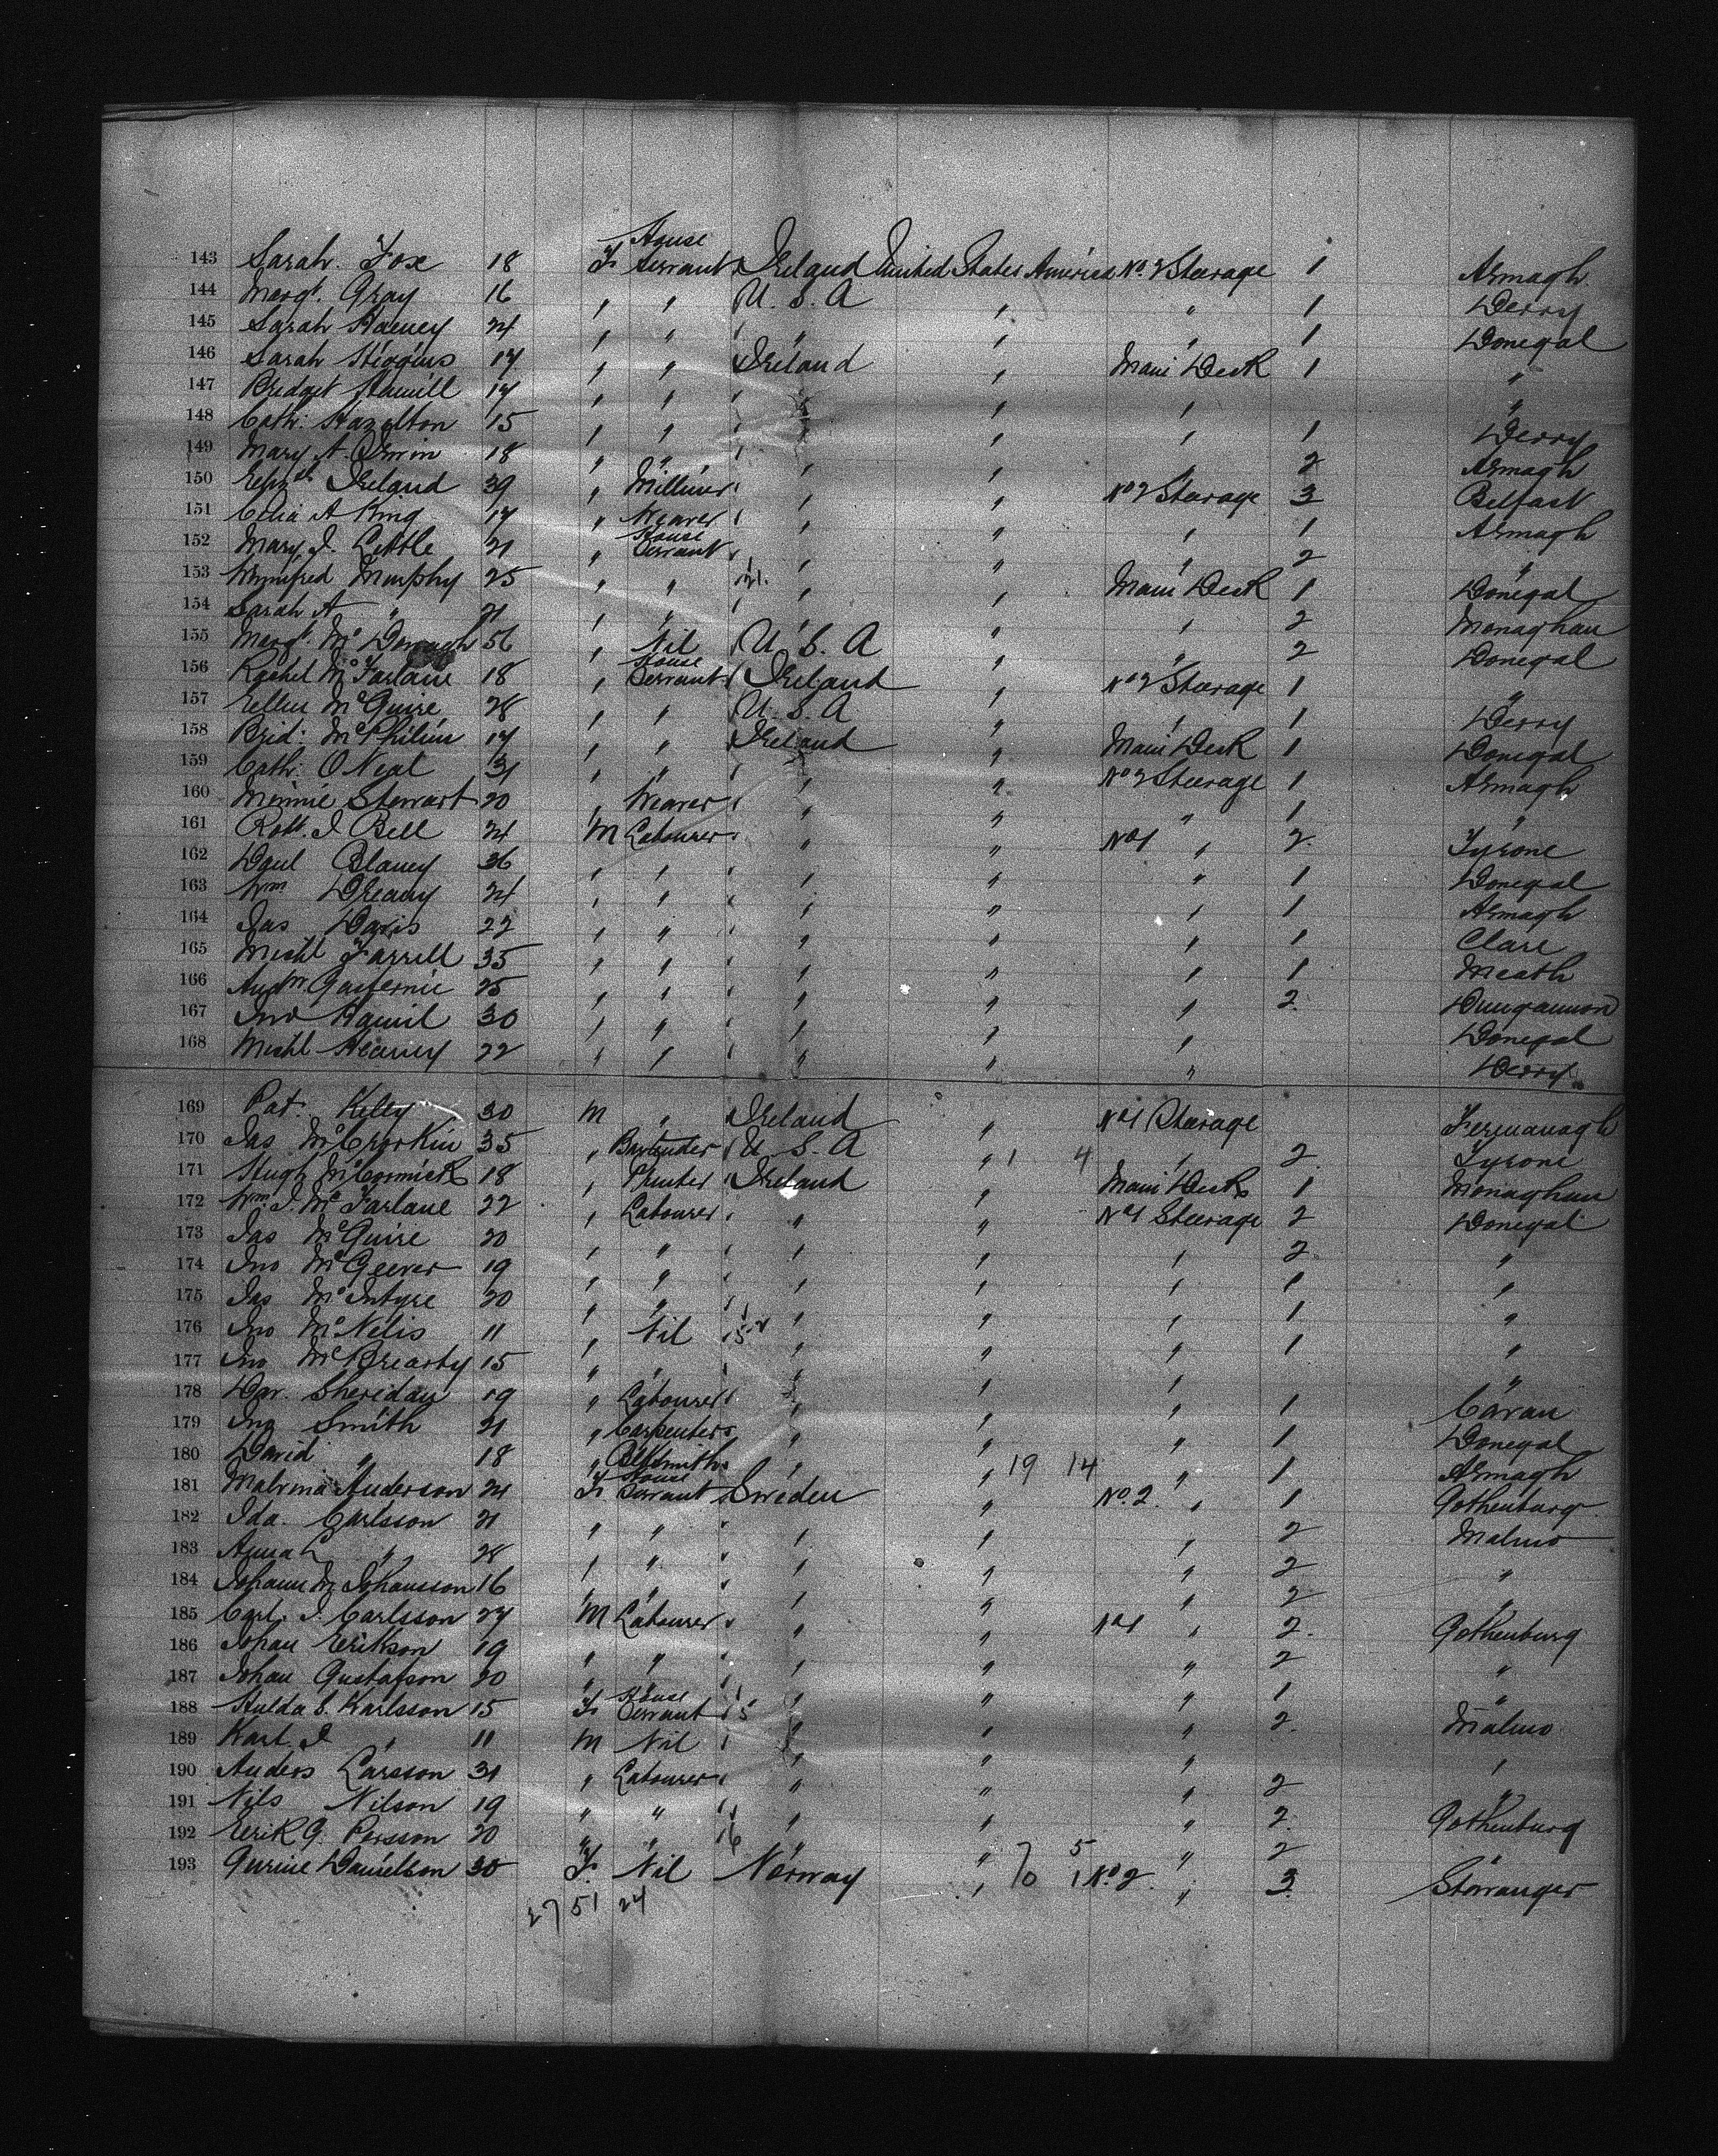 143 Sarah Fox 18 F House Servant Ireland United States America No. 2 Steerage 1 Armagh
144 Margt. Gray 16 " " U. S. A " " 1 Derry
145 Sarah 24 " " " " " 1 Donegal
146 Sarah Higgins 17 " " Ireland " Main Deck 1 "
147 Bridget 17 " " " " " "
148 Cath. Hazelton 15 " " " " " 1 Derry
149 Mary A. Irwin 18 " " " " " 2 Armagh
150 Ireland 39 " Milliner " " No 2 Steerage 3 Belfast
151 Celia A King 17 " Weaver " " " 1 Armagh
152 Mary J. Little 21 " House Servant " " " 2 "
153 Winnifred Murphy 25 " " 21 " " Main Deck 1 Donegal
154 Sarah A " 21 " " " " " 2 Monaghan
155 Margt. 56 " Nil U. S. A " " 2 Donegal
156 Rachel McFarlane 18 " House Servant Ireland " No 2 Steerage 1 "
157 Ellen McGuire 28 " " U. S. A " " 1 Derry
158 Brid. McPhilim 17 " " Ireland " Main Deck 1 Donegal
159 Cath. O Neal 31 " " " " No 2 Steerage 1 Armagh
160 Minnie Stewart 20 " Weaver " " " 1 "
161 Robt. J Bell 24 M Labourer " " No 1 " 2 Tyrone
162 Danl Blaney 36 " " " " " 1 Donegal
163 Wm 24 " " " " " 1 Armagh
164 Jas Davis 22 " " " " " 1 Clare
165 Michl Farrell 35 " " " " " 1 Meath
166 25 " " " " " 2 Dungannon
167 Jno Hamil 30 " " " " " Donegal
168 Michl 22 " " " " " Derry
169 Pat. Kelly 30 M " Ireland " No 1 Steerage Fermanagh
170 Jas 35 " Bartender U. S. A " 1 4 " 2 Tyrone
171 Hugh McCormick 18 " Printer Ireland " Main Deck 1 Monaghan
172 Wm. J. McFarlane 22 " Labourer " " No 1 Steerage 2 Donegal
173 Jas McGuire 20 " " " " " 2 "
174 Jno McGeever 19 " " " " " 1 "
175 Jas McIntyre 20 " " " " " 1 "
176 Jno McNelis 11 " Nil " " " 1 "
177 Jno McBrearty 15 " " " " " "
178 Sheridan 19 " Labourer " " " 1 Cavan
179 Jno Smith 21 " Carpenter " " " 1 Donegal
180 David " 18 " Blksmith " " 19 14 " 1 Armagh
181 Malvina Anderson 24 F House Servant Sweden " No. 2 " 1 Gothenburg
182 Ida. Carlsson 21 " " " " " 2 Malmo
183 " 28 " " " " " 2 "
184 Johann M Johansson 16 " " " " " 2 "
185 Carl. J. Carlsson 27 M Labourer " " No 1 " 2 Gothenburg
186 Johan Erikson 19 " " " " " 2 "
187 Johan Gustafson 20 " " " " " 1 "
188 Hulda S. Karlsson 15 F House Servant " " " 2 Malmo
189 J " 11 M Nil " " " "
190 Anders Larsson 31 " Labourer " " " 2 "
191 Nils Nilson 19 " " " " " 2 Gothenburg
192 Erik G. Persson 20 " " 6 " " 5 " 2 "
193 Gurine Danielson 30 F. Nil Norway " No 2 " 3
27 51 24